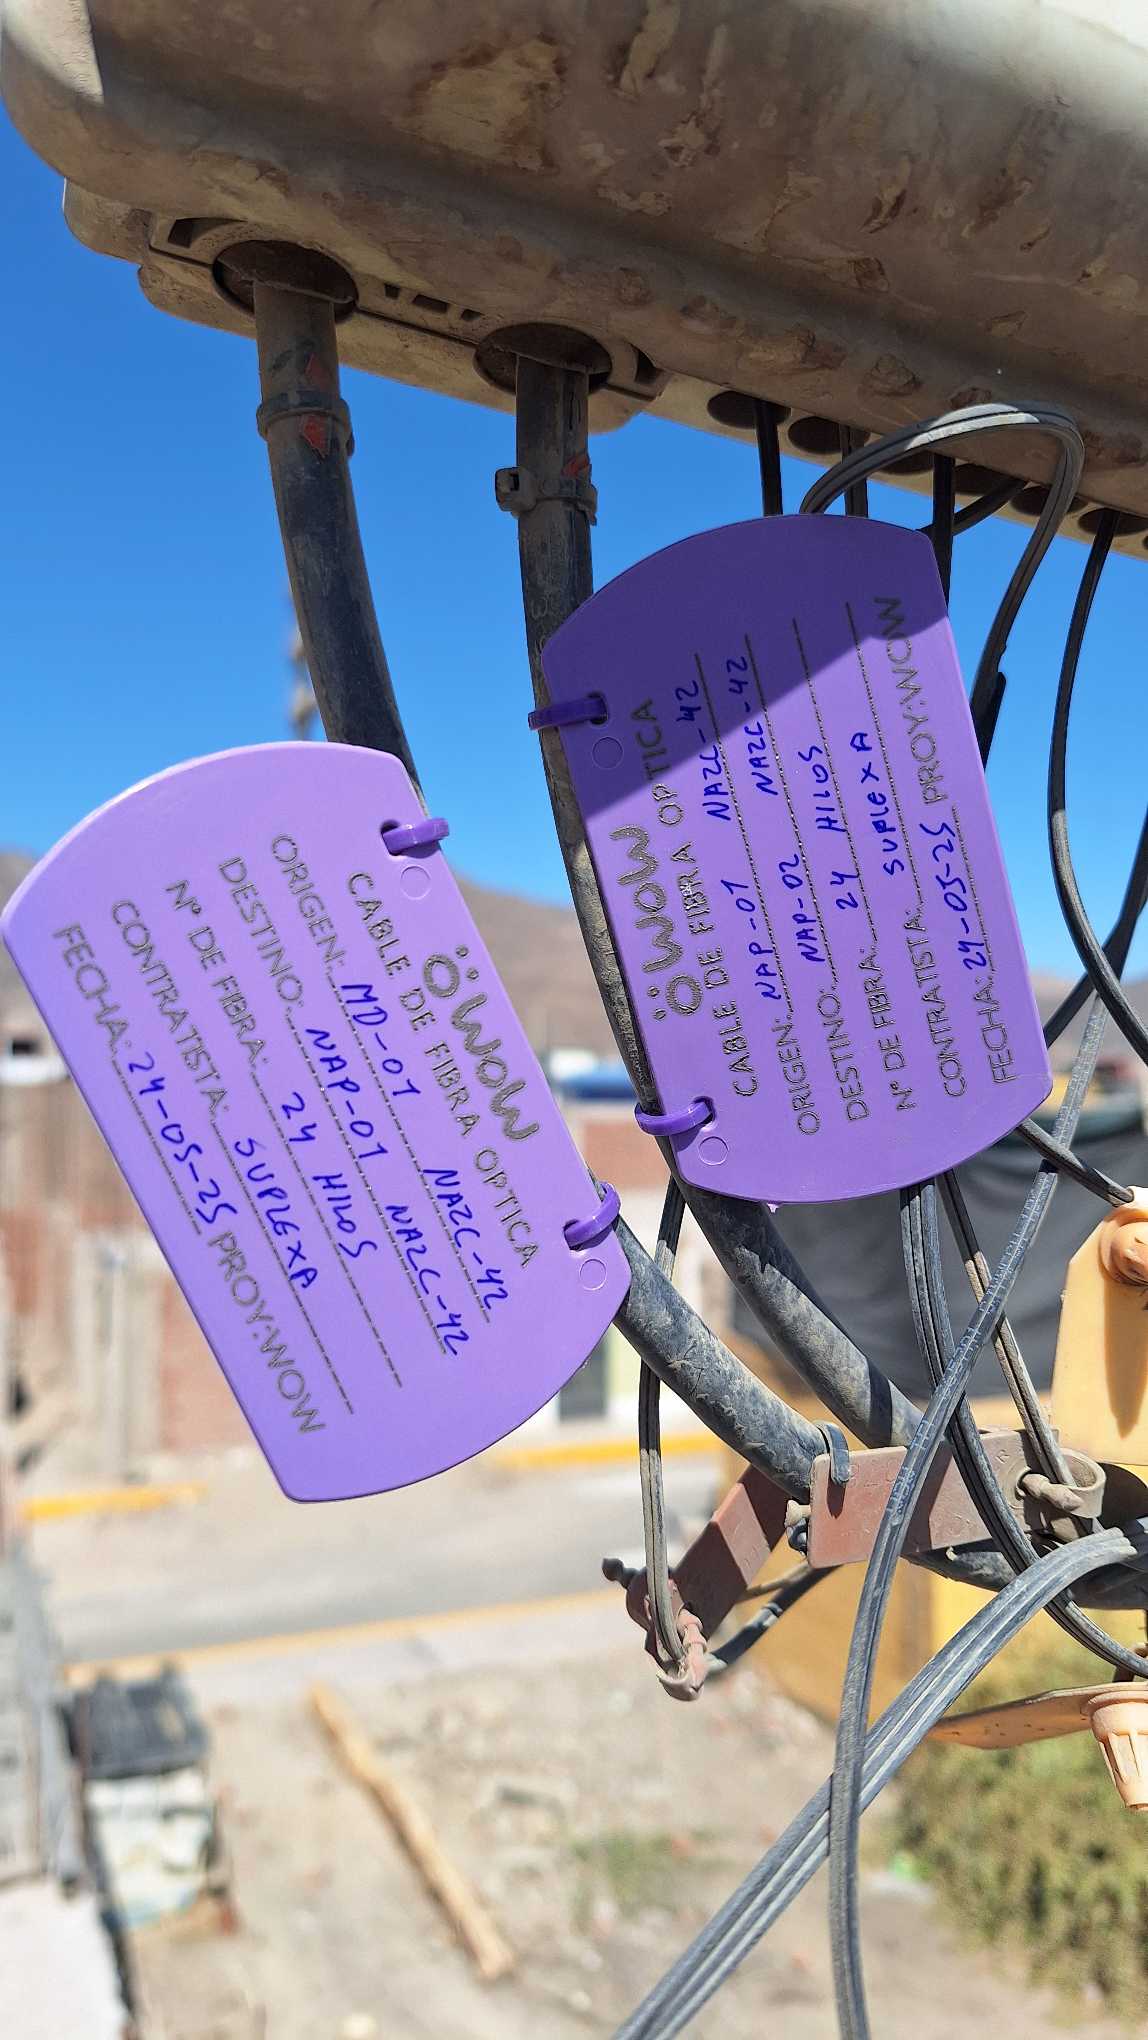 WOW
CABLE DE FIBRA OPTICA
ORIGEN: MD-01 NAZC-42
DESTINO: NAP-01 NAZC-42
N° DE FIBRA: 24 HILOS
CONTRATISTA: SUPLEXA
FECHA: 24-05-25 PROY: WOW
WOW
CABLE DE FIBRA OPTICA
ORIGEN: NAP-01 NAZC-42
DESTINO: NAP-02 NAZC-42
N° DE FIBRA: 24 HILOS
CONTRATISTA: SUPLEXA
FECHA: 24-05-25 PROY: WOW